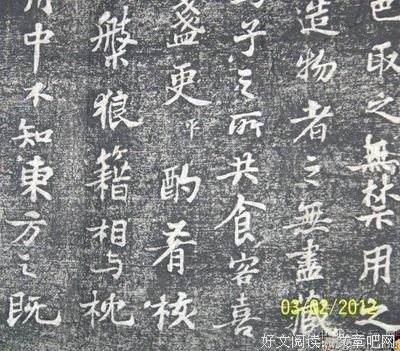 色取之無禁用之
造物者之無盡藏
與子之所共食客喜
盞更平酌肴核
槃狼籍相与枕
舟中不知東方之既
03/02/2012
好文阅读:文章吧网